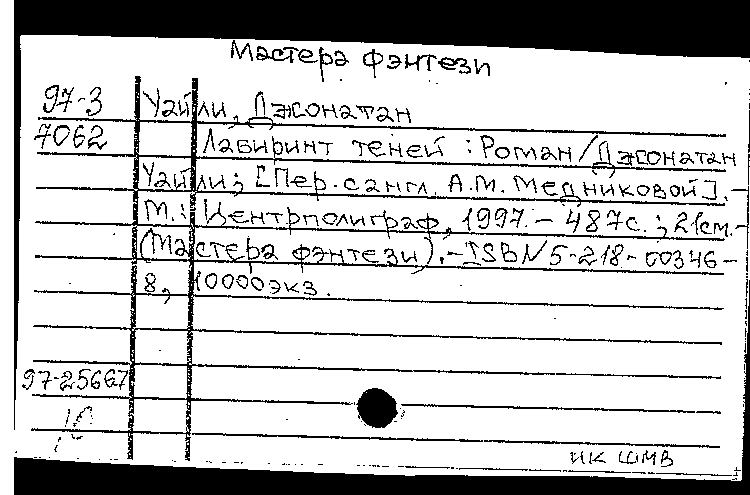 Мастера фэнтези
97-3 Уайли, Джонатан
7062 Лабиринт теней : Роман / Джонатан
Уайли; [Пер. с англ. А.М. Медниковой]. -
М.: Центрполиграф, 1997. - 487с.; 21см. -
(Мастера фэнтези). - ISBN 5-218-00346-
8, 10000экз.
97-25667
ИК ШМВ